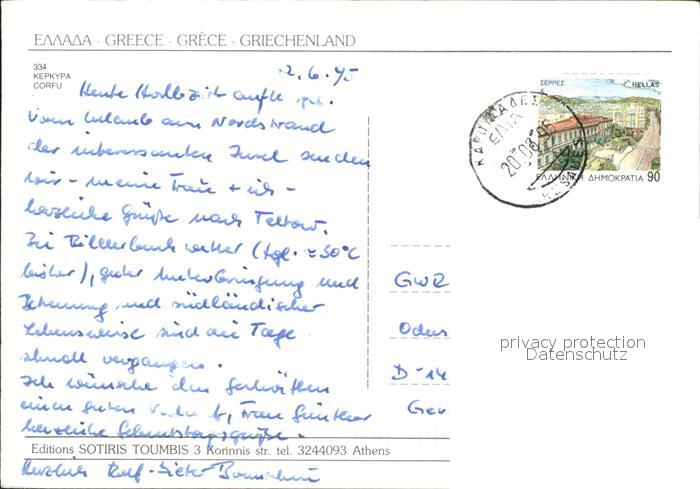 ΕΛΛΑΔΑ - GREECE - GRÈCE - GRIECHENLAND
334
ΚΕΡΚΥΡΑ
CORFU
12.6.95
Heute Halbzeit
Vom Urlaub am Nordstrand
der interessanten Insel senden
wir - meine Frau + ich -
herzliche Grüße nach Teltow.
Bei Bilderbuchwetter (tgl. ≈ 30°C
bisher), guter Unterbringung und
Betreuung und südländischer
Lebensweise sind die Tage
schnell vergangen.
Ich wünsche den
einen guten Frau Günther
herzliche Geburtstagsgrüße.
Herzlich Rolf-Dieter
Editions SOTIRIS TOUMBIS 3 Korinnis str. tel. 3244093 Athens
ΣΕΡΡΕΣ
HELLAS
ΕΛΛΗΝΙΚΗ ΔΗΜΟΚΡΑΤΙΑ 90
GWR
Oder
D-14
privacy protection
Datenschutz